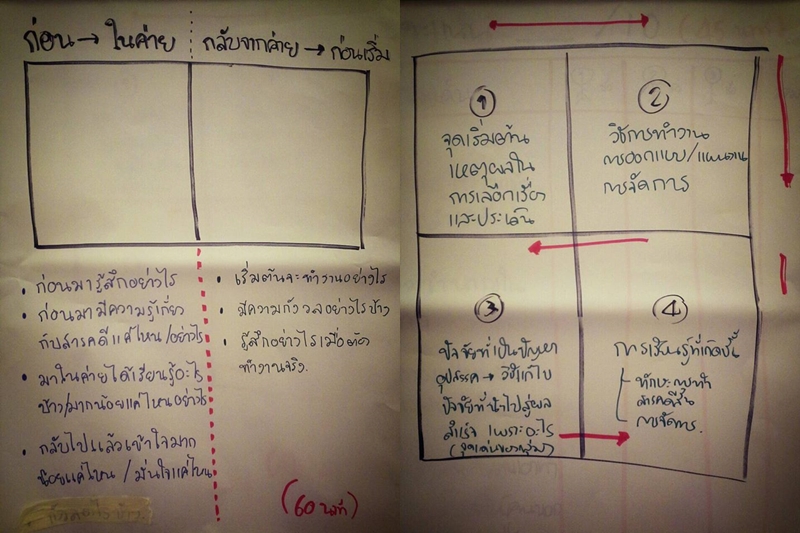 ก่อน → ในค่าย
กลับจากค่าย → ก่อนเริ่ม
• ก่อนมารู้สึกอย่างไร
• ก่อนมามีความรู้เกี่ยว
กับสารคดีแค่ไหน/อย่างไร
• มาในค่ายได้เรียนรู้อะไร
บ้าง/มากน้อยแค่ไหนอย่างไร
• กลับไปแล้วเข้าใจมาก
น้อยแค่ไหน / มั่นใจแค่ไหน
• เริ่มต้นจะทำงานอย่างไร
• มีความกังวลอย่างไรบ้าง
• รู้สึกอย่างไรเมื่อต้อง
ทำงานจริง.
(60 นาที)
①
จุดเริ่มต้น
เหตุผลใน
การเลือกเรื่อง
และประเด็น
②
วิธีการทำงาน
การออกแบบ/แผนงาน
การจัดการ
③
ปัจจัยที่เป็นปัญหา
อุปสรรค → วิธีแก้ไข
ปัจจัยที่นำไปสู่ผล
สำเร็จ เพราะอะไร
④
การเรียนรู้ที่เกิดขึ้น
ทักษะการทำ
สารคดีสั้น
การจัดการ.